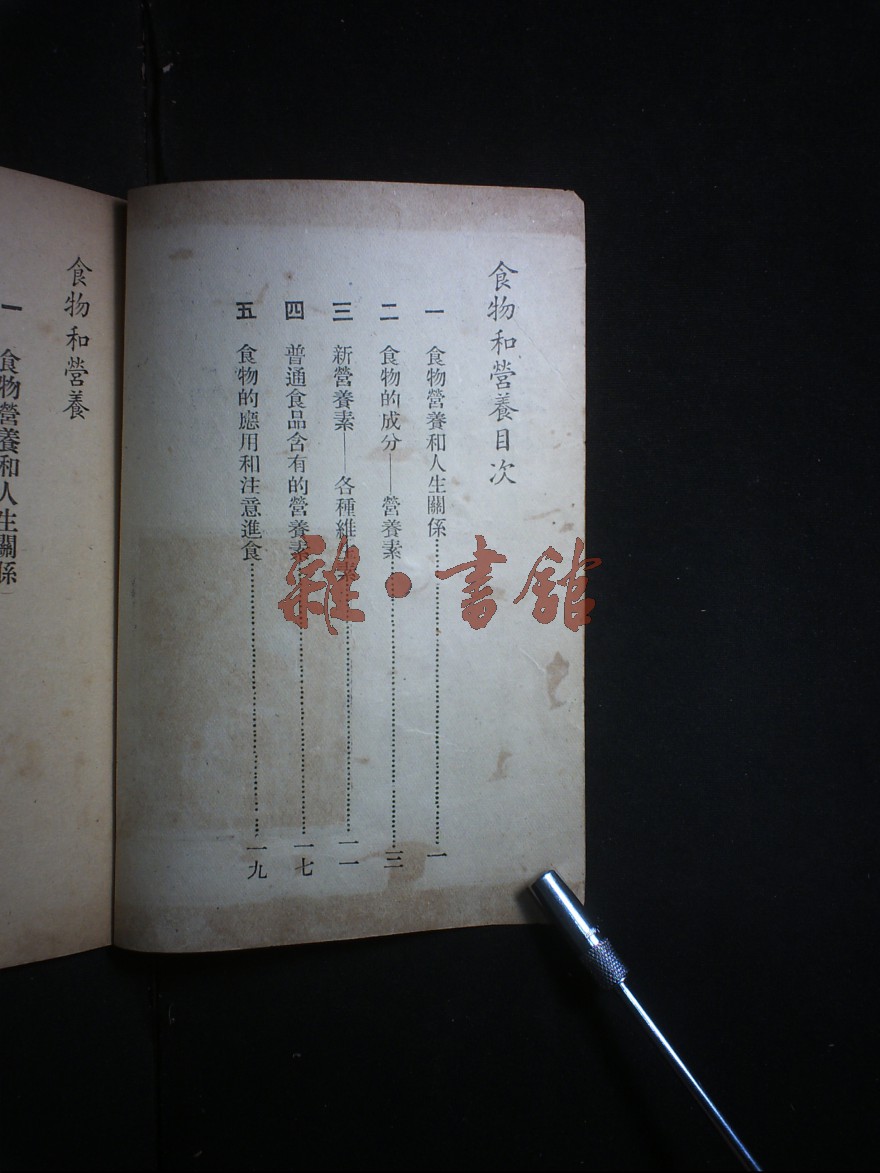 食物和營養目次
一 食物營養和人生關係……一
二 食物的成分——營養素……三
三 新營養素——各種維
……一一
四 普通食品含有的營養素……一七
五 食物的應用和注意進食……一九
食物和營養
一 食物營養和人生關係
雜·書館